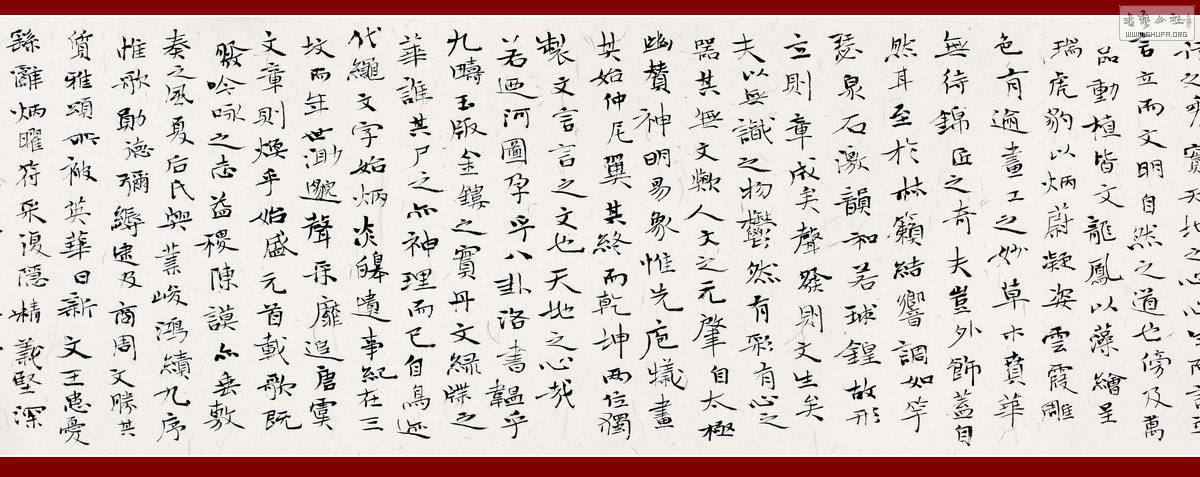 行之秀實天地之心心生而言立
言立而文明自然之道也傍及萬
品動植皆文龍鳳以藻繪呈
瑞虎豹以炳蔚凝姿雲霞雕
色有逾畫工之妙草木賁華
無待錦匠之奇夫豈外飾蓋自
然耳至於林籟結響調如竽
瑟泉石激韻和若球鍠故形
立則章成矣聲發則文生矣
夫以無識之物鬱然有彩有心之
器其無文歟人文之元肇自太極
幽贊神明易象惟先庖犧畫
其始仲尼翼其終而乾坤兩位獨
製文言言之文也天地之心哉
若迺河圖孕乎八卦洛書韞乎
九疇玉版金鏤之實丹文緑牒之
華誰其尸之亦神理而已自鳥迹
代繩文字始炳炎皞遺事紀在三
墳而年世渺邈聲采靡追唐虞
文章則煥乎始盛元首載歌既
發吟咏之志益稷陳謨亦垂敷
奏之風夏后氏興業峻鴻績九序
惟歌勛德彌縟逮及商周文勝其
質雅頌所被英華日新文王患憂
繇辭炳曜符采復隱精義堅深
WWW.SHUFA.ORG